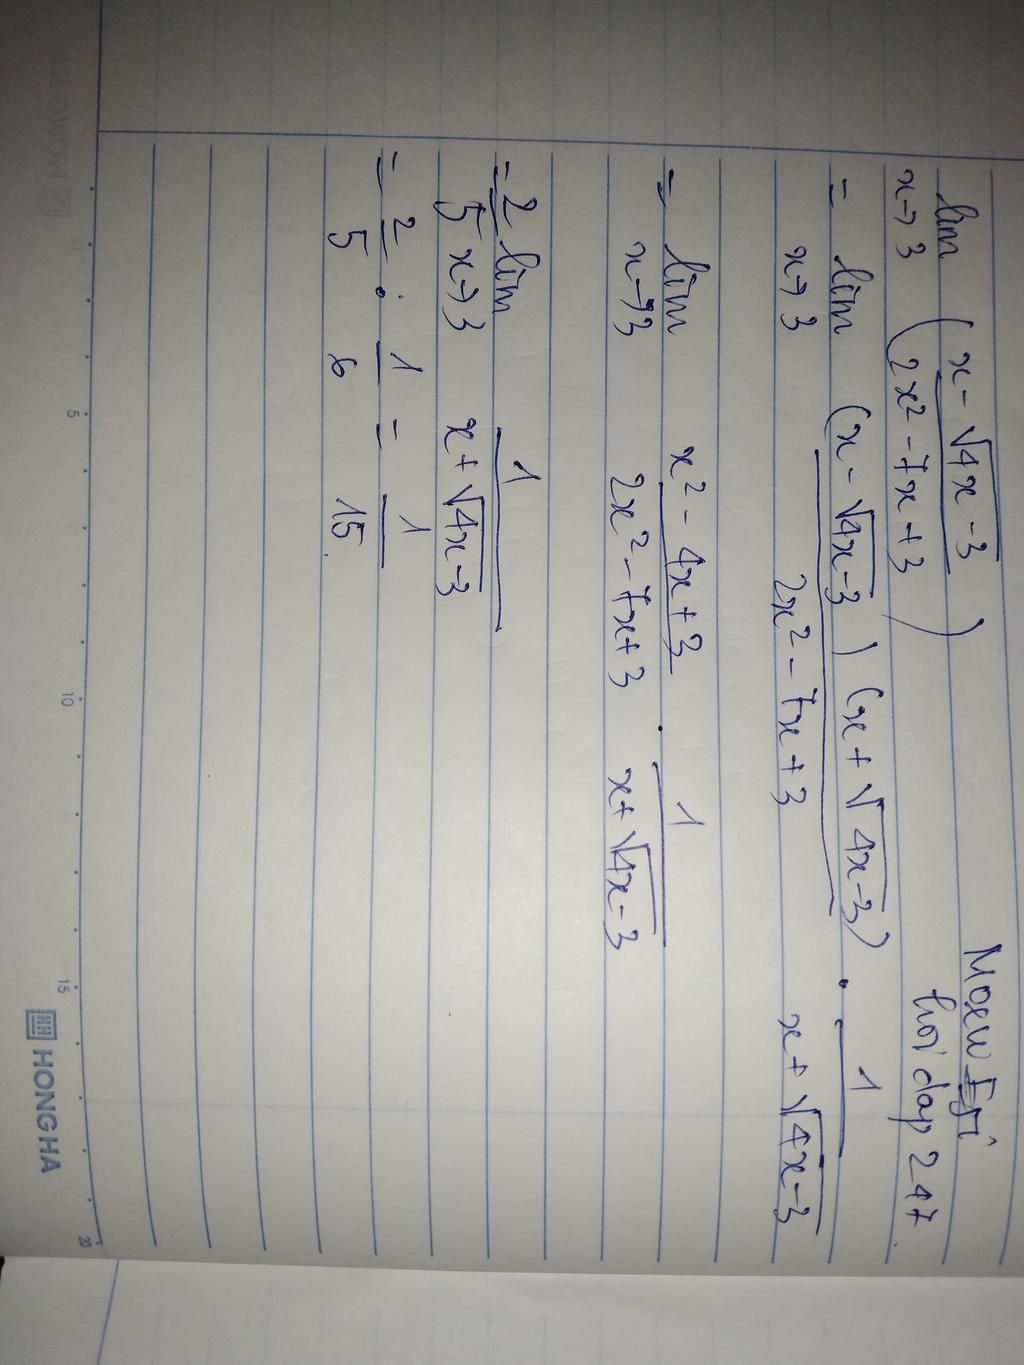 Moew Egi
hoidap 247
lim x→3 ( (x - √(4x - 3)) / (2x² - 7x + 3) )
= lim x→3 ((x - √(4x-3)) (x + √(4x-3))) / (2x² - 7x + 3) . 1 / (x + √(4x-3))
= lim x→3 (x² - 4x + 3) / (2x² - 7x + 3) . 1 / (x + √(4x-3))
= 2/5 lim x→3 1 / (x + √(4x-3))
= 2/5 . 1/6 = 1/15
5 10 15 20
HH HONG HA